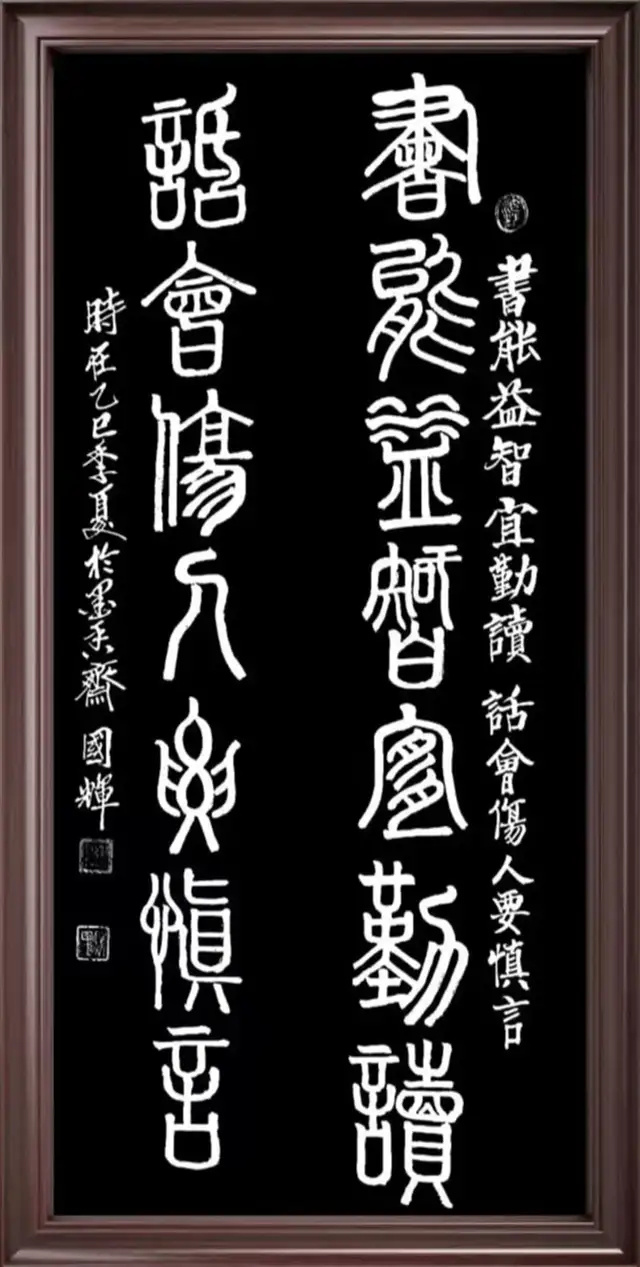 書能益智宜勤讀 話會傷人要慎言
書能益智宜勤讀
話會傷人要慎言
時在乙巳季夏於墨香齋 國輝